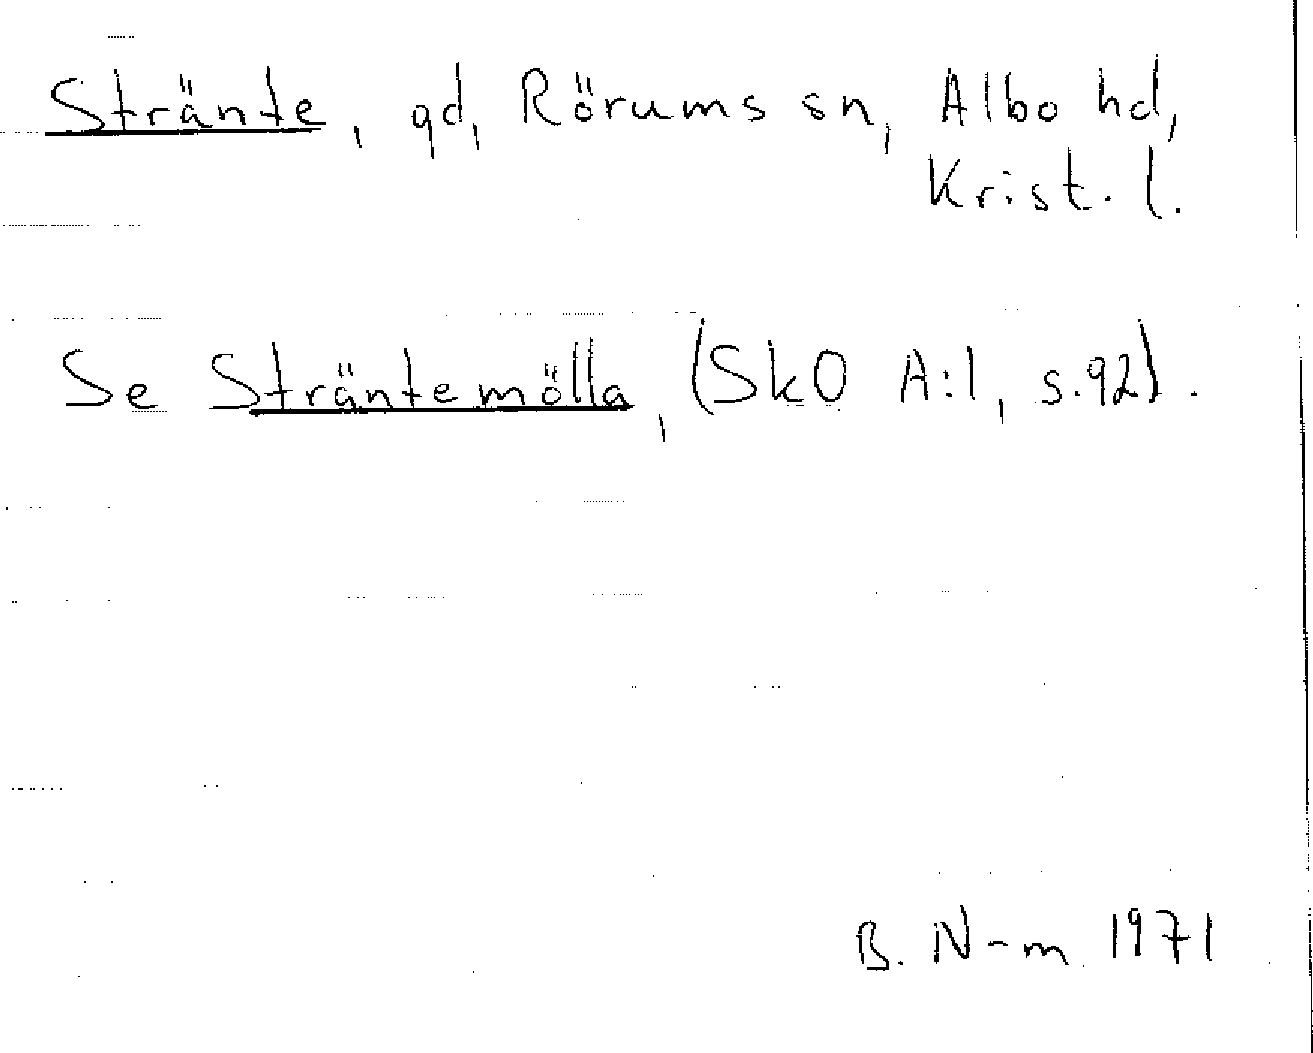 Stränte, gd, Rörums sn, Albo hd,
Krist. l.
Se Sträntemölla, (SkO A:1, s.92).
B. N-m 1971